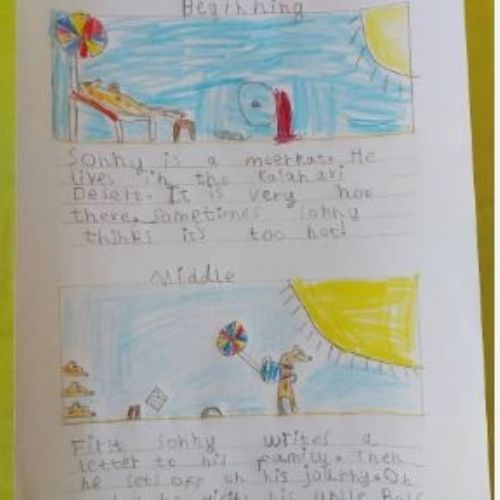 Beginning
Sonny is a meerkat. He
lives in the Kalahari
Desert. It is very hot
there. Sometimes Sonny
thinks it's too hot!
Middle
First Sonny writes a
letter to his family. Then
he sets off on his journy. On